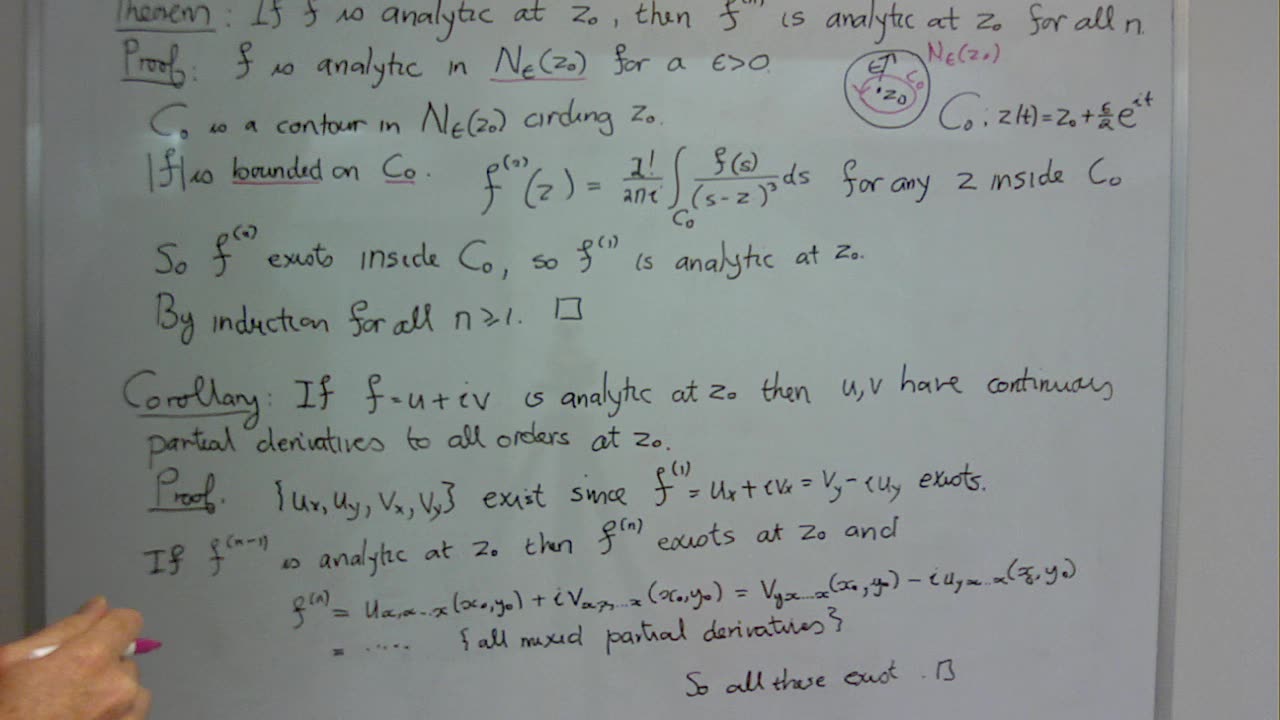 Theorem: If f is analytic at z₀, then f⁽ⁿ⁾ is analytic at z₀ for all n.
Proof: f is analytic in Nε(z₀) for a ε>0.
ε C₀ z₀ Nε(z₀)
C₀ is a contour in Nε(z₀) circling z₀.
C₀: z(t) = z₀ + ε/2 e^{it}
|f| is bounded on C₀. f⁽²⁾(z) = 2!/2πi ∫_{C₀} f(s)/(s-z)³ ds for any z inside C₀
So f⁽²⁾ exists inside C₀, so f⁽¹⁾ is analytic at z₀.
By induction for all n ≥ 1. □
Corollary: If f = u + iv is analytic at z₀ then u, v have continuous
partial derivatives to all orders at z₀.
Proof. {uₓ, u_y, vₓ, v_y} exist since f⁽¹⁾ = uₓ + ivₓ = v_y - iu_y exists.
If f⁽ⁿ⁻¹⁾ is analytic at z₀ then f⁽ⁿ⁾ exists at z₀ and
f⁽ⁿ⁾ = u_{x,x...x}(x₀,y₀) + i v_{x,x...x}(x₀,y₀) = v_{yx...x}(x₀,y₀) - i u_{yx...x}(x₀,y₀)
= ..... {all mixed partial derivatives}
So all these exist. □